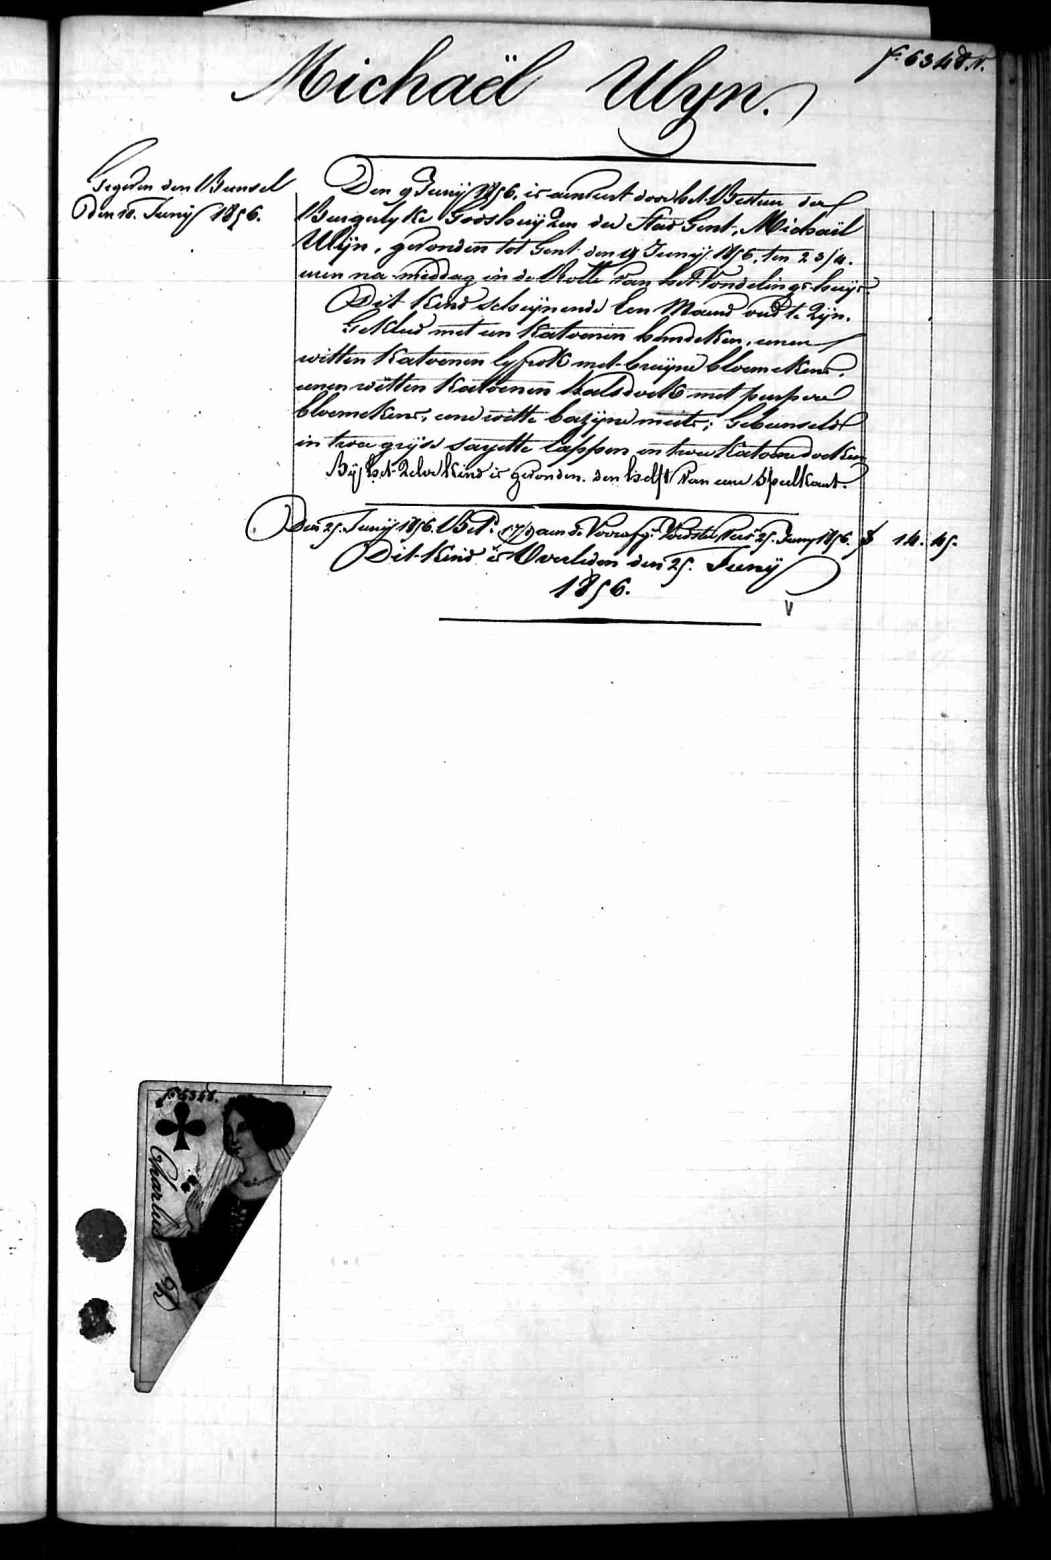 f. 6348. N.
Michaël Ulyn.
Gegeven den Bunsel
den 10. Junij 1856.
Den 9 Junij 1856, is aenveert door het Bestuer der
Burgerlyke Godshuijzen der Stad Gent, Michaël
Ulijn, gevonden tot Gent den 9 Junij 1856, ten 2 3/4.
uren na middag in de Rolle van het Vondelingshuijs.
Dit kind schijnende Een Maend oud te zijn.
Gekleed met een katoenen hemdeken, eenen
witten katoenen lyfrok met bruijne bloemekens,
eenen witten katoenen halsdoek met purpere
bloemekens, eene witte bazijne muts; Gebunseld
in twee grijse sayette lappen en twee katoene doeken
Bij het zelve kind is gevonden, den helft van eene speelkaart.
Den 25. Junij 1856. Bet. aen de 25. Junij 1856. 14. 45.
Dit kind is Overleden den 25. Junij
1856.
V
f. 6348.
Charles